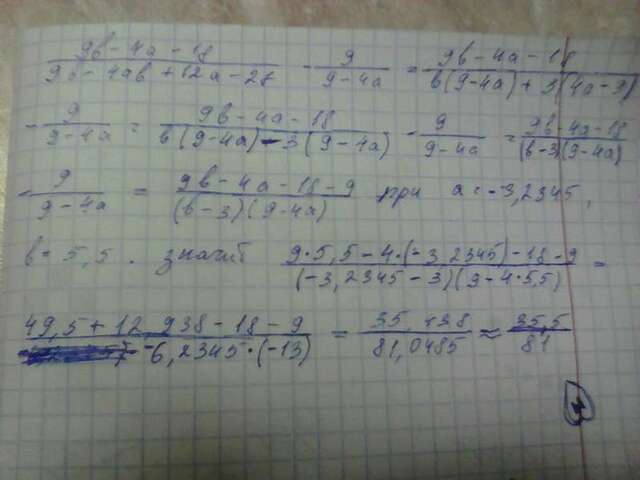 (9b - 4a - 18)/(9b - 4ab + 12a - 27) - 9/(9 - 4a) = (9b - 4a - 18)/(b(9 - 4a) + 3(4a - 9))
- 9/(9 - 4a) = (9b - 4a - 18)/(b(9 - 4a) - 3(9 - 4a)) - 9/(9 - 4a) = (9b - 4a - 18)/((b - 3)(9 - 4a))
- 9/(9 - 4a) = (9b - 4a - 18 - 9)/((b - 3)(9 - 4a)) при a = -3,2345,
b = 5,5. значит (9·5,5 - 4·(-3,2345) - 18 - 9)/((-3,2345 - 3)(9 - 4·5,5)) =
(49,5 + 12,938 - 18 - 9)/(-6,2345·(-13)) = 35,438/81,0485 ≈ 35,5/81